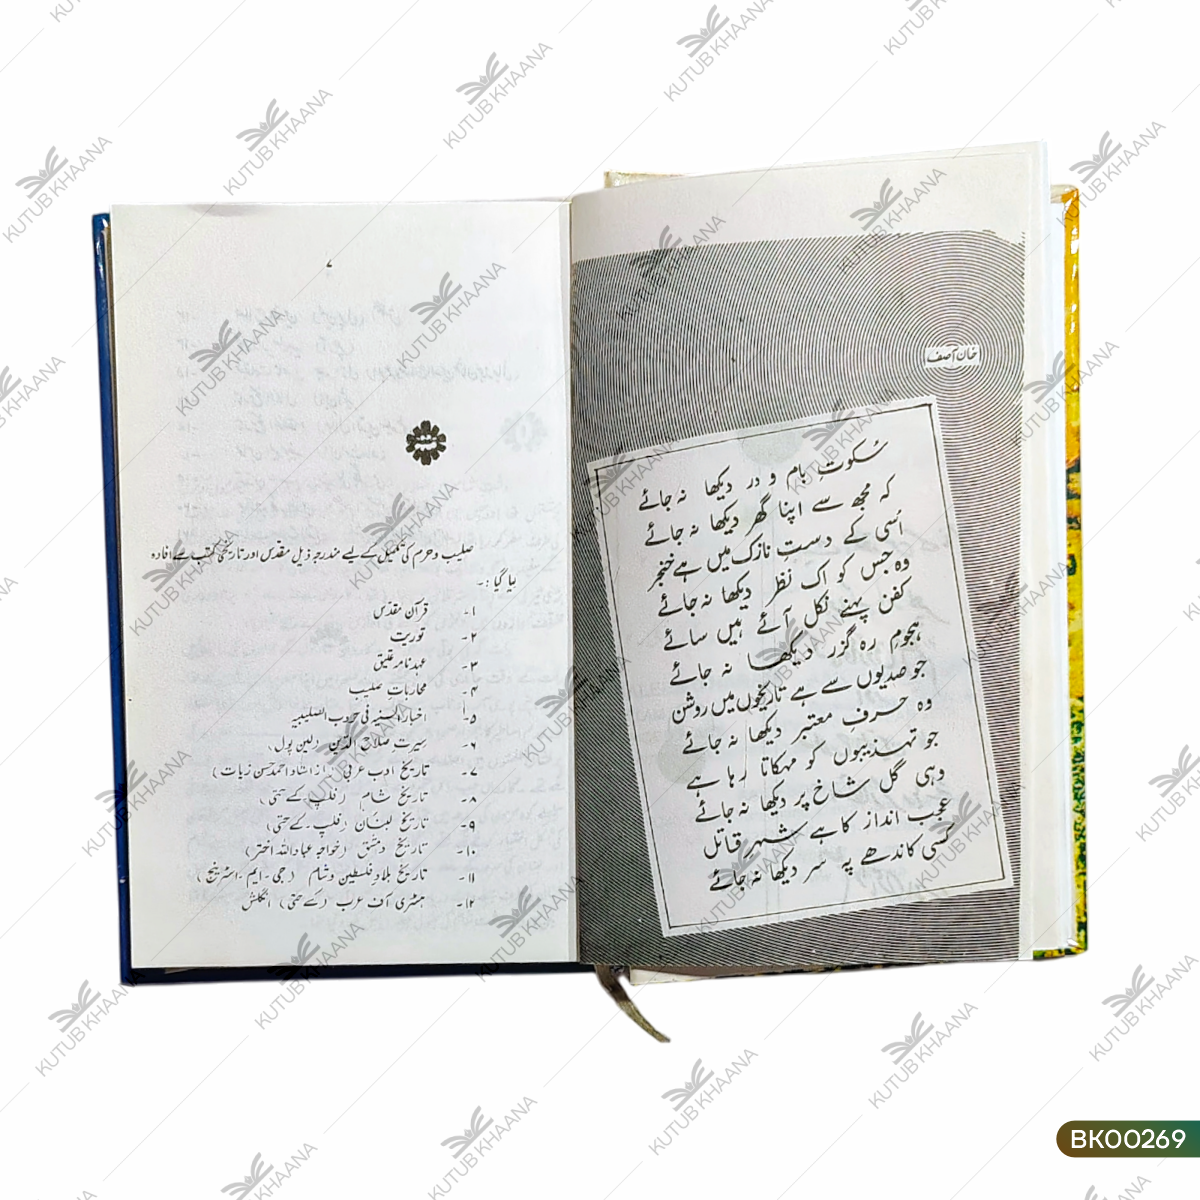 ۷
صلیب و حرم کی تکمیل کے لیے مندرجہ ذیل مقدس اور تاریخی کتب سے افادہ
لیا گیا :۔
۱۔ قرآن مقدس
۲۔ توریت
۳۔ عہد نامہ عتیق
۴۔ محاربات صلیب
۵۔ اخبار السنیہ فی حروب الصلیبیہ
۶۔ سیرت صلاح الدین (لین پول)
۷۔ تاریخ ادب عربی (از استاد احمد حسن زیات)
۸۔ تاریخ شام (فلپ کے حتی)
۹۔ تاریخ لبنان (فلپ کے حتی)
۱۰۔ تاریخ دمشق (خواجہ عباد اللہ اختر)
۱۱۔ تاریخ بلاد فلسطین و شام (جی۔ ایم۔ اسٹرینج)
۱۲۔ ہسٹری آف عرب (کے حتی) انگلش
خان آصف
سُکوتِ بام و در دیکھا نہ جائے
کہ مجھ سے اپنا گھر دیکھا نہ جائے
اُسی کے دستِ نازک میں ہے خنجر
وہ جس کو اک نظر دیکھا نہ جائے
کفن پہنے نکل آئے ہیں سائے
ہجومِ رہ گزر دیکھا نہ جائے
جو صدیوں سے ہے تاریخوں میں روشن
وہ حرفِ معتبر دیکھا نہ جائے
جو تہذیبوں کو مہکاتا رہا ہے
وہی گل شاخ پر دیکھا نہ جائے
عجب انداز کا ہے شہرِ قاتل
کسی کاندھے پہ سر دیکھا نہ جائے
KUTUB KHAANA
BK00269